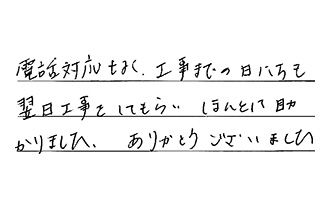 電話対応もよく、工事までの日にちも
翌日工事をしてもらい ほんとに助
かりました、 ありがとうございました